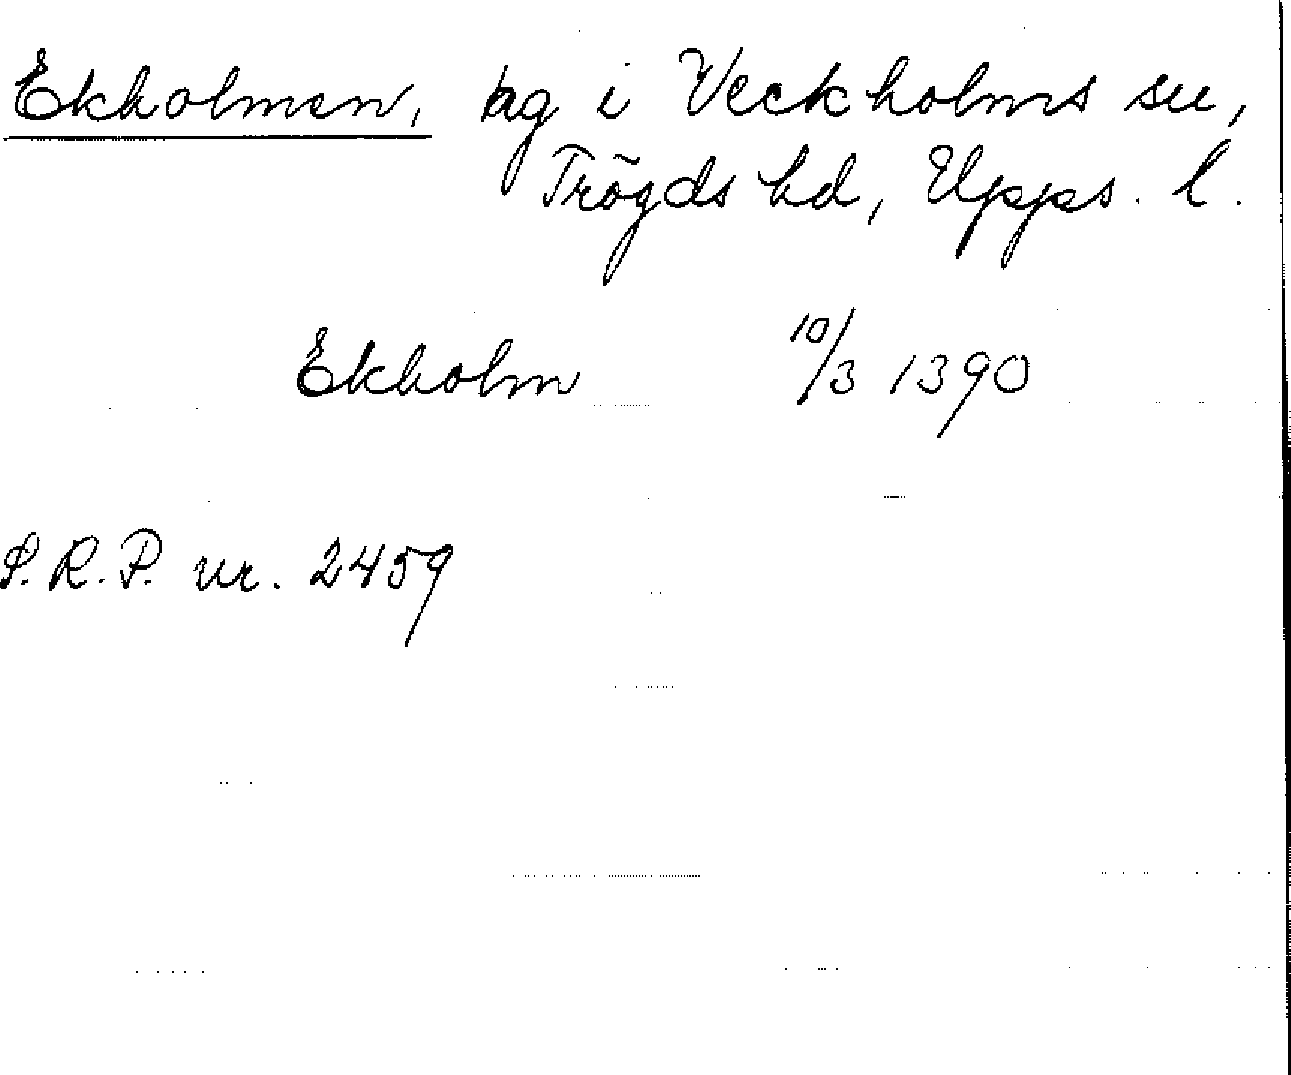 Ekholmen, hg i Veckholms sn,
Trögds hd, Upps. l.
Ekholm 10/3 1390
S.R.P. nr. 2459